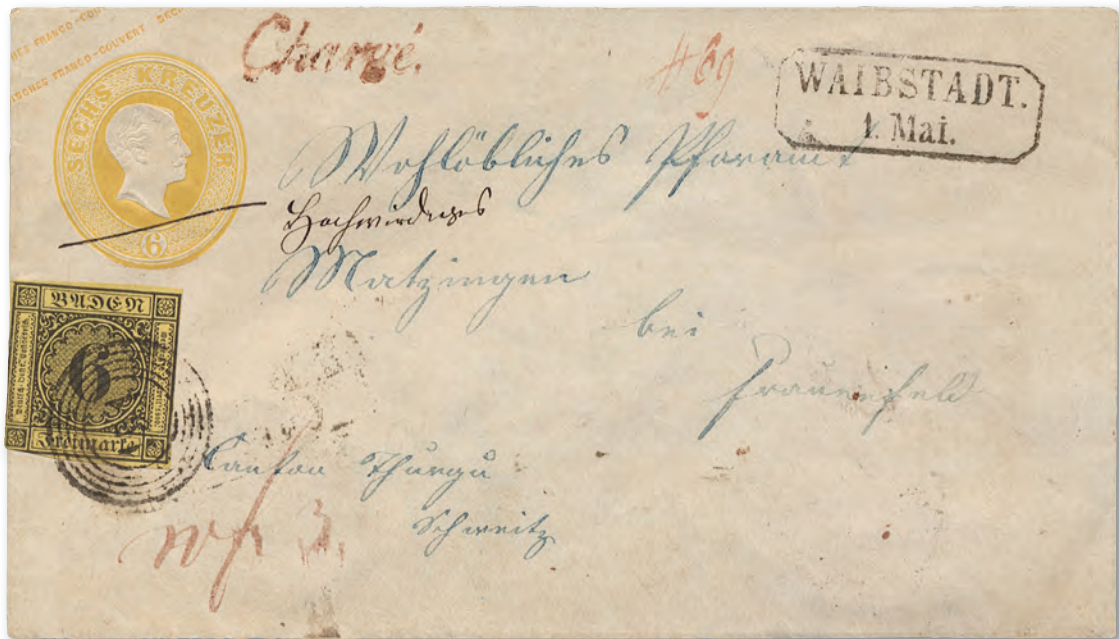 FRANCO-COUVERT
SCHES FRANCO-COUVERT
SECHS KREUZER
6
Chargé.
#69
WAIBSTADT.
1. Mai.
Wohllöbliches Pfaramt
Hochwürdiges
Matzingen
bei
Frauenfeld
BADEN
6
Freimarke
Canton Thurgu
Schweitz
wf 3